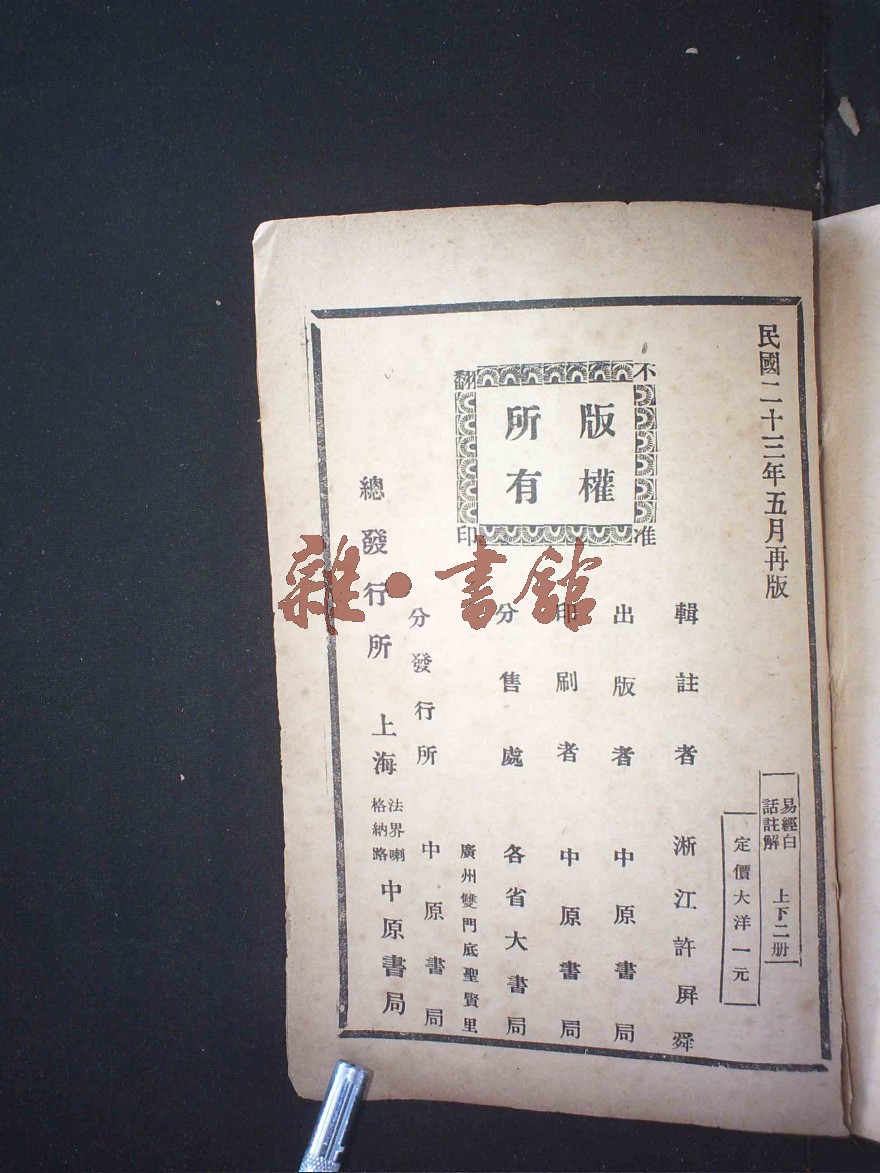 民國二十三年五月再版
易經白話註解 上下二册
定價大洋一元
不准翻印
版權所有
輯註者 淅江許屏舜
出版者 中原書局
印刷者 中原書局
分售處 各省大書局
廣州雙門底聖賢里
分發行所 中原書局
總發行所 上海法界喇格納路中原書局
雜·書館